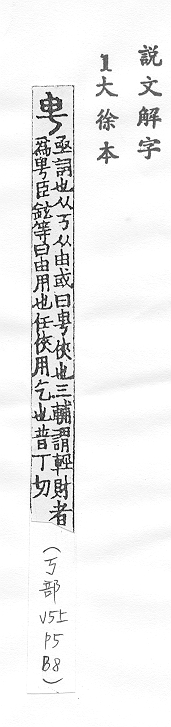 說文解字
1大徐本
甹
亟詞也从丂从由或曰甹俠也三輔謂輕財者
爲甹臣鉉等曰由用也任俠用气也普丁切
(丂部
V5上
P5
B8)